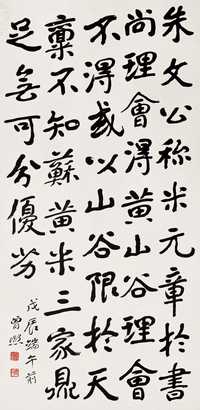 朱文公称米元章於書
尚理會得黃山谷理會
不得或以山谷限於天
稟不知蘇黃米三家鼎
足無可分優劣
戊辰端午前
曾熙